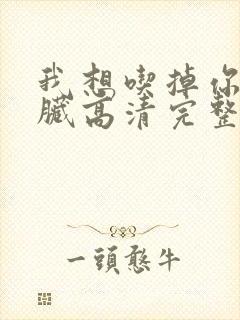 我想喫掉你
臟高清完整
一頭憨牛